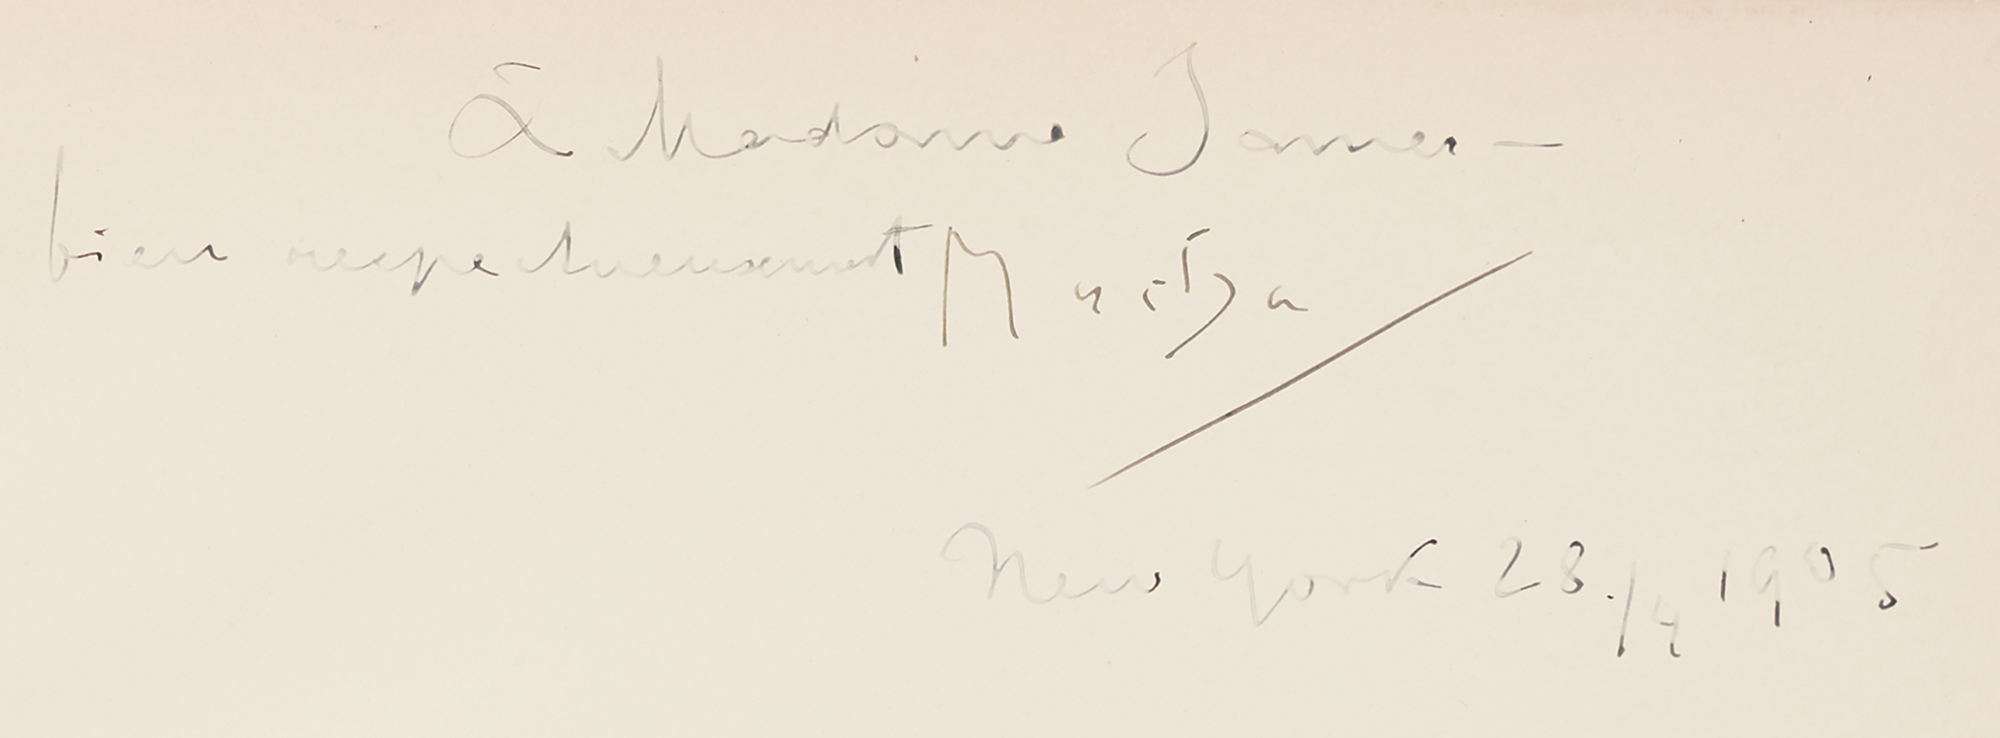 à Madame James —
bien respectueusement Mucha
New York 28./4 1905